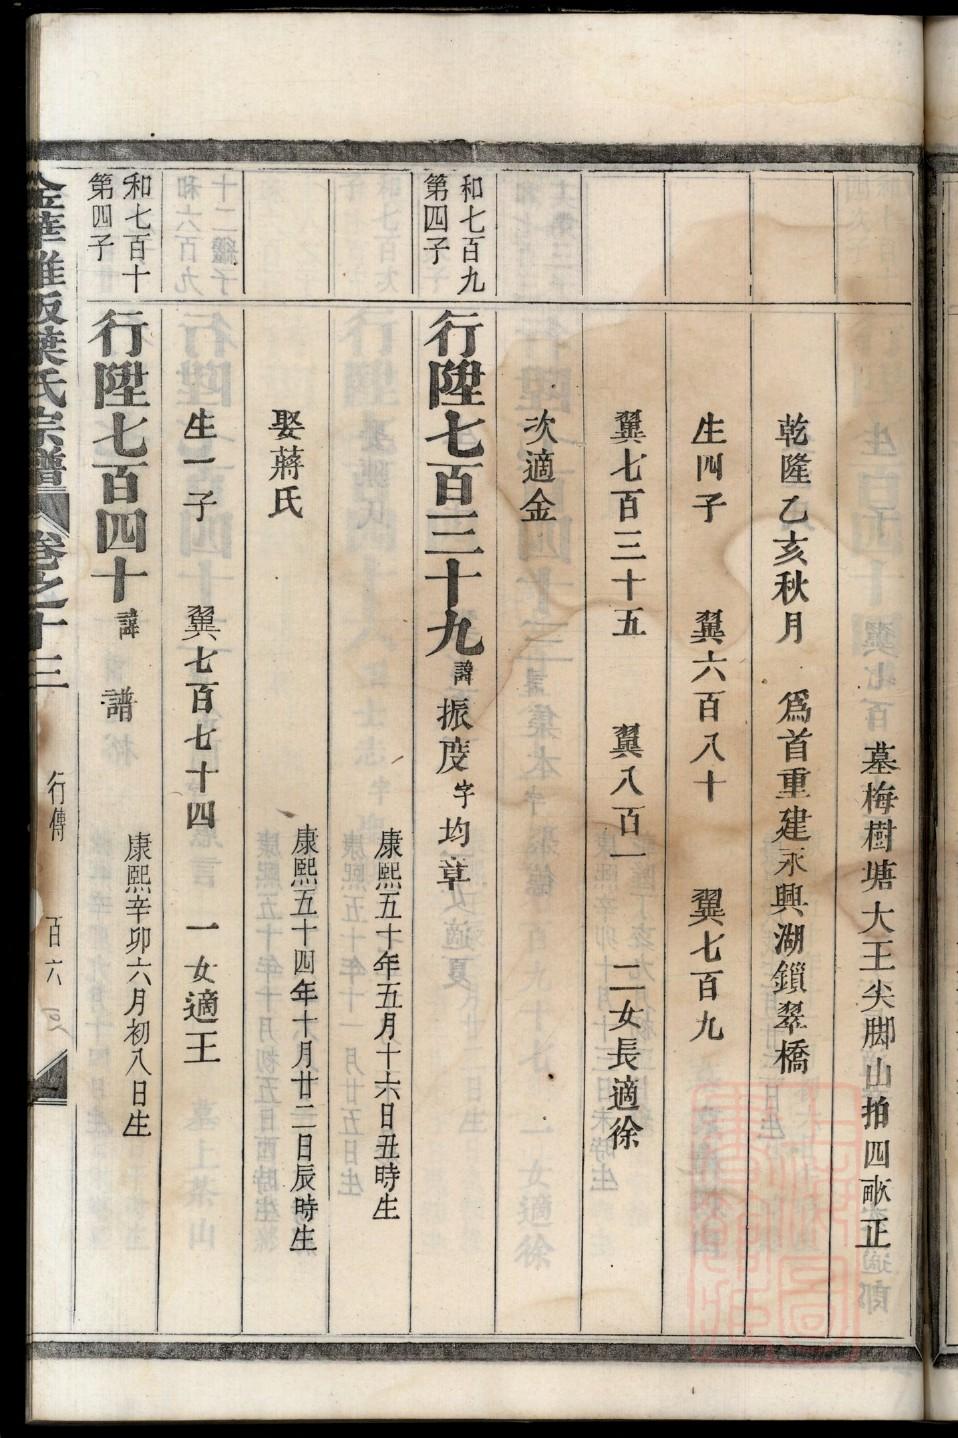 墓梅樹塘大王尖脚山拍四畝正
乾隆乙亥秋月　為首重建永興湖鎖翠橋
生四子　翼六百八十　翼七百九
翼七百三十五　翼八百一　二女長適徐
次適金
和七百九
第四子
行陞七百三十九 諱振度 字均章
康熙五十年五月十六日丑時生
娶蔣氏
康熙五十四年十月廿二日辰時生
生一子　翼七百七十四　一女適王
和七百十
第四子
行陞七百四十 諱　譜
康熙辛卯六月初八日生
葉氏宗譜 卷之十三 行傳 百六